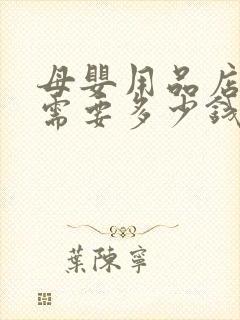 母嬰用品店
需要多少錢
葉陳寧